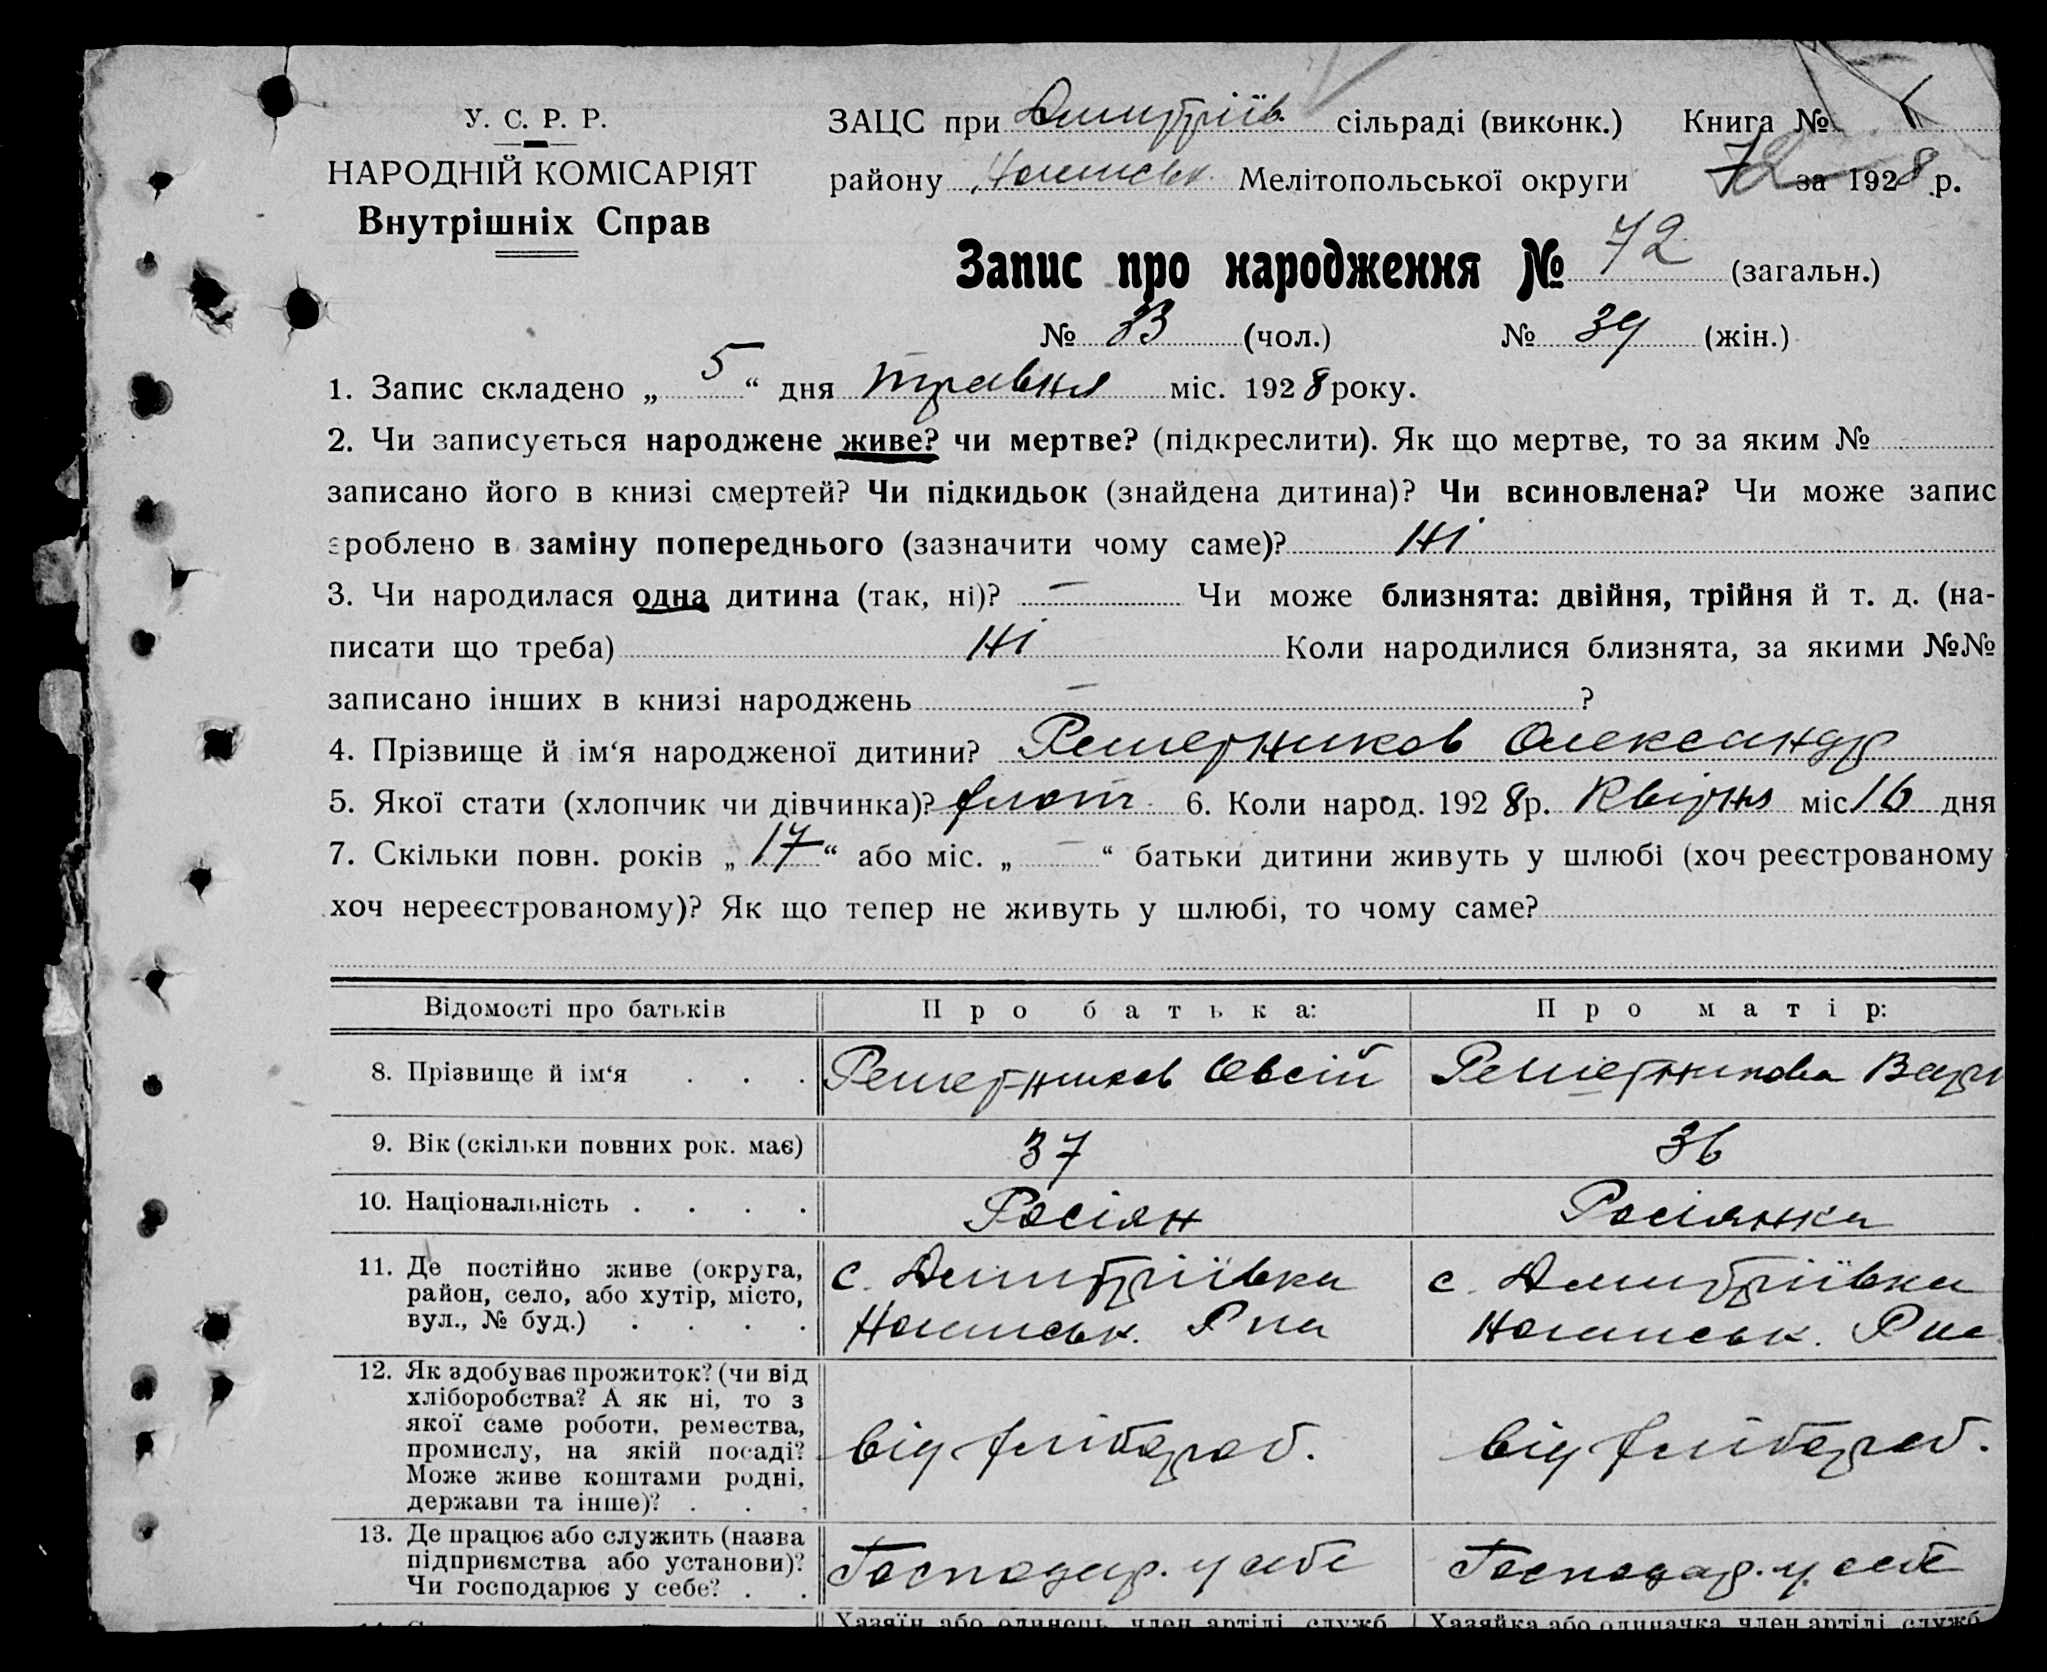 У. С. Р. Р.
НАРОДНІЙ КОМІСАРІЯТ
Внутрішніх Справ
ЗАЦС при Дмитріїв. сільраді (виконк.) Книга №
району Мелітопольської округи 72 за 1928 р.
Запис про народження № 72 (загальн.)
№ 33 (чол.) № 39 (жін.)
1. Запис складено „ 5 “ дня травня міс. 1928 року.
2. Чи записується народжене живе? чи мертве? (підкреслити). Як що мертве, то за яким №
записано його в книзі смертей? Чи підкидьок (знайдена дитина)? Чи всиновлена? Чи може запис
зроблено в заміну попереднього (зазначити чому саме)? Ні
3. Чи народилася одна дитина (так, ні)? — Чи може близнята: двійня, трійня й т. д. (на-
писати що треба) Ні Коли народилися близнята, за якими №№
записано інших в книзі народжень — ?
4. Прізвище й ім‘я народженої дитини? Решетников Олександр
5. Якої стати (хлопчик чи дівчинка)? хлоп. 6. Коли народ. 1928 р. Квітня міс 16 дня
7. Скільки повн. років „ 17 “ або міс. „ — “ батьки дитини живуть у шлюбі (хоч реєстрованому
хоч нереєстрованому)? Як що тепер не живуть у шлюбі, то чому саме?
Відомості про батьків Про батька: Про матір:
8. Прізвище й ім‘я . . . Решетников Овсій Решетникова
9. Вік (скільки повних рок. має) 37 36
10. Національність . . . . Росіян Росіянка
11. Де постійно живе (округа,
район, село, або хутір, місто,
вул., № буд.) . . . .
с. Дмитріївка
Р-на
с. Дмитріївка
Р-на
12. Як здобуває прожиток? (чи від
хліборобства? А як ні, то з
якої саме роботи, ремества,
промислу, на якій посаді?
Може живе коштами родні,
держави та інше)? . . .
від хлібороб.
від хлібороб.
13. Де працює або служить (назва
підприємства або установи)?
Чи господарює у себе? . .
Господар. у себе
Господар. у себе
Хазяїн або одинець, член артілі, служб. Хазяйка або одиначка, член артілі, служб.